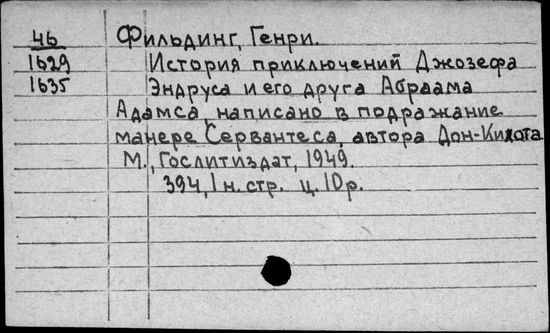 46 Фильдинг, Генри.
1629 История приключений Джозефа
1635 Эндруса и его друга Абраама
Адамса, написано в подражание
манере Сервантеса, автора Дон-Кихота
М., Гослитиздат, 1949.
394, 1 н. стр. ц. 10 р.